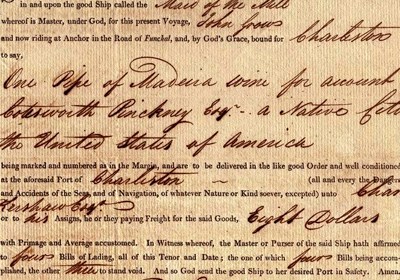 in and upon the good Ship called the Maid of the Mill
whereof is Master, under God, for this present Voyage, John Grows
and now riding at Anchor in the Road of Funchal, and, by God's Grace, bound for Charleston
to say,
One Pipe of Madeira wine for account
Cotesworth Pinckney Esqr. a Native Citi
the United States of America
being marked and numbered as in the Margin, and are to be delivered in the like good Order and well conditioned
at the aforesaid Port of Charleston (all and every the Dangers
and Accidents of the Seas, and of Navigation, of whatever Nature or Kind soever, excepted) unto Char
Kershaw Esqr
or to his Assigns, he or they paying Freight for the said Goods, Eight Dollars
with Primage and Average accustomed. In Witness whereof, the Master or Purser of the said Ship hath affirmed
to four Bills of Lading, all of this Tenor and Date; the one of which four Bills being accom-
plished, the other three to stand void. And so God send the good Ship to her desired Port in Safety. Amen.